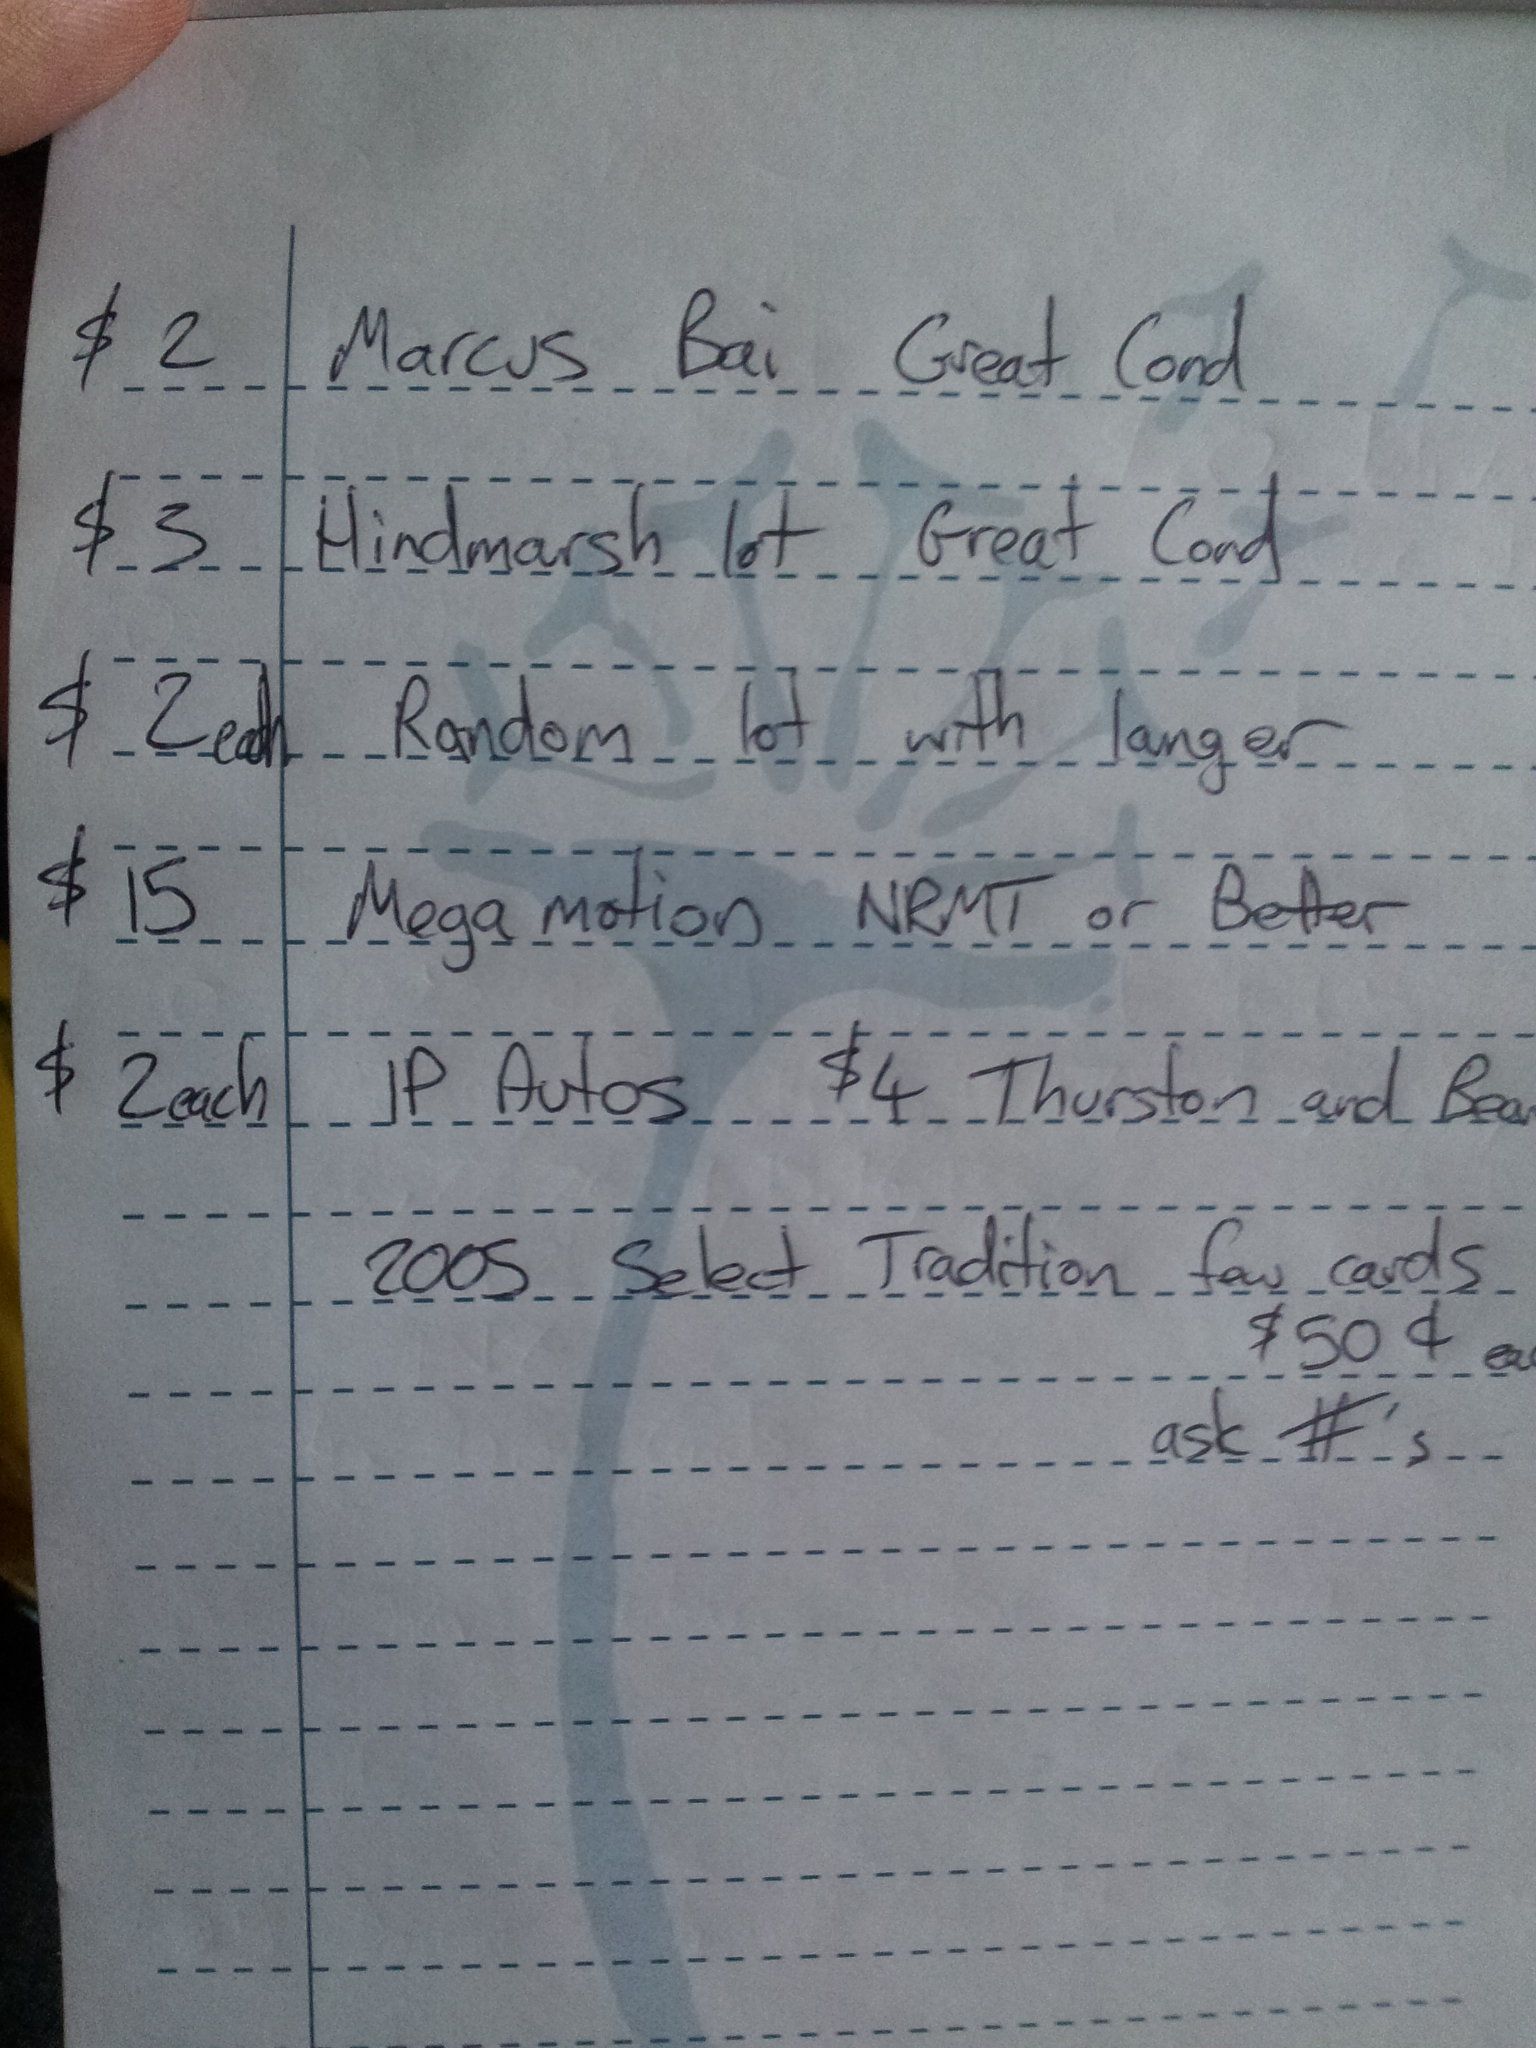 $ 2 Marcus Bai Great Cond
$ 3 Hindmarsh lot Great Cond
$ 2 each Random lot with langer
$ 15 Mega motion NRMT or Better
$ 2 each JP Autos $4 Thurston and
2005 Select Tradition few cards
$50 ¢
ask #'s